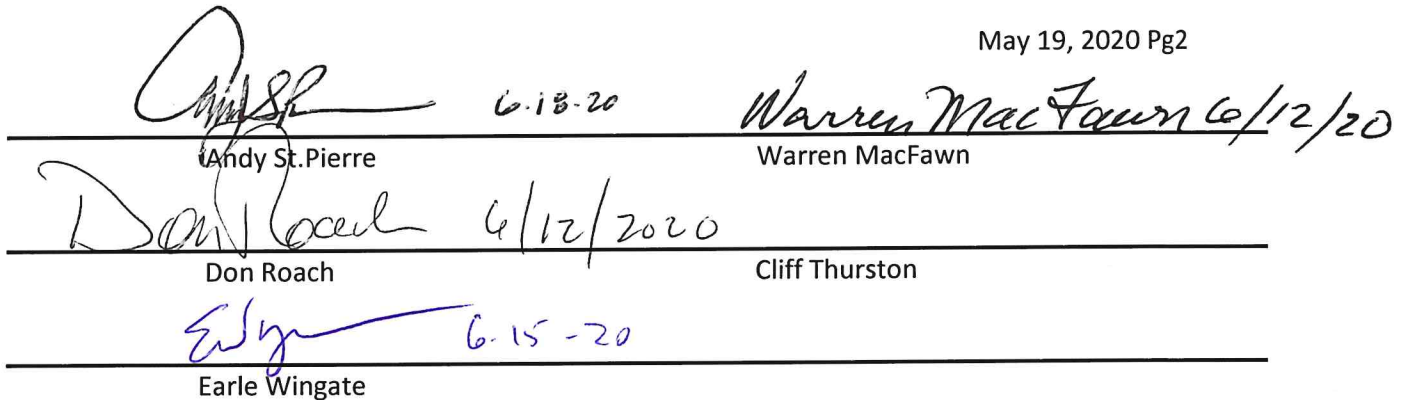 May 19, 2020 Pg2
6-18-20 Warren MacFawn 6/12/20
Andy St.Pierre Warren MacFawn
Don Roach 6/12/2020
Don Roach Cliff Thurston
6-15-20
Earle Wingate